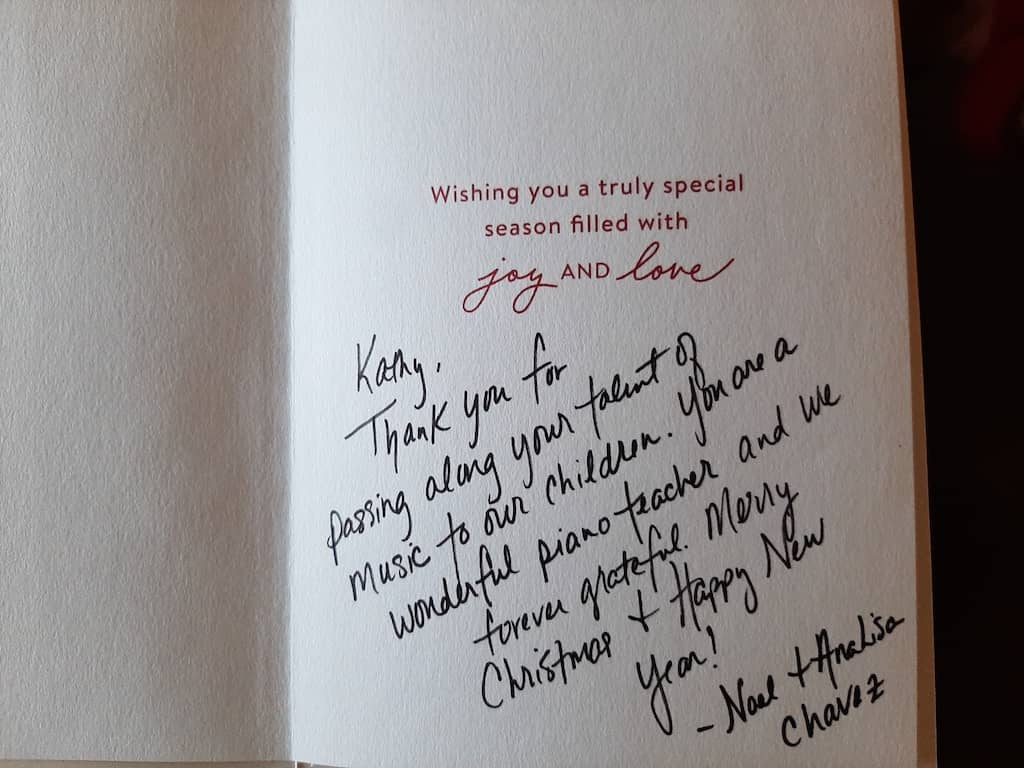 Wishing you a truly special
season filled with
joy AND love
Kathy,
Thank you for
passing along your talent of
music to our children. You are a
wonderful piano teacher and we
forever grateful. Merry
Christmas + Happy New
Year!
- Noel + AnaLisa
Chavez